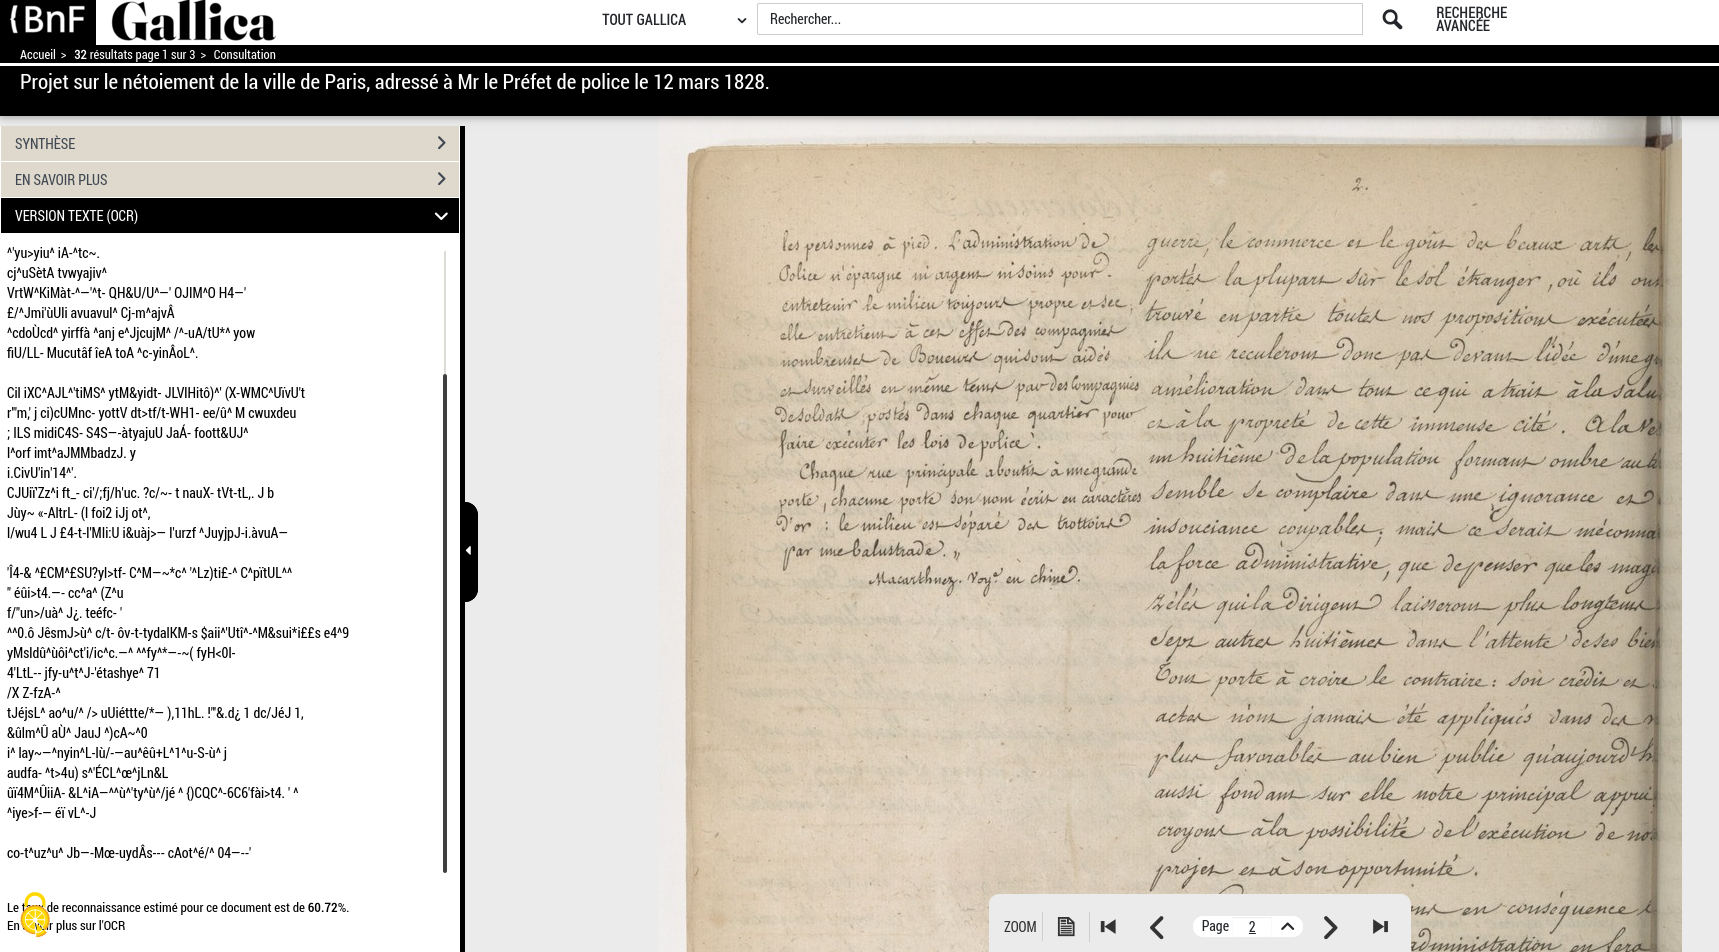 {BnF Gallica
TOUT GALLICA
Rechercher...
RECHERCHE
AVANCÉE
Accueil > 32 résultats page 1 sur 3 > Consultation
Projet sur le nétoiement de la ville de Paris, adressé à Mr le Préfet de police le 12 mars 1828.
SYNTHÈSE
EN SAVOIR PLUS
VERSION TEXTE (OCR)
^'yu>yiu^ iA-^tc~.
cj^uSètA tvwyajiv^
VrtW^KiMàt-^—'^t- QH&U/U^—' OJIM^O H4—'
£/^Jmi'ùUli avuavul^ Cj-m^ajvÂ
^cdoÙcd^ yirffà ^anj e^JjcujM^ /^-uA/tU*^ yow
fiU/LL- Mucutâf îeA toA ^c-yinÂoL^.
CiI iXC^AJL^'tiMS^ ytM&yidt- JLVIHitô)^' (X-WMC^UîvU't
r'"m,' j ci)cUMnc- yottV dt>tf/t-WH1- ee/û^ M cwuxdeu
; ILS midiC4S- S4S—-àtyajuU JaÁ- foott&UJ^
l^orf imt^aJMMbadzJ. y
i.CivU'in'14^'.
CJUïi'Zz^i ft_- ci'/;fj/h'uc. ?c/~- t nauX- tVt-tL,. J b
Jùy~ «-AItrL- (I foi2 iJj ot^,
I/wu4 L J £4-t-l'MIi:U i&uàj>— l'urzf ^JuyjpJ-i.àvuA—
'Î4-& ^£CM^£SU?yl>tf- C^M—~*c^ '^Lz)ti£-^ C^pïtUL^^
" éûi>t4.—- cc^a^ (Z^u
f/"un>/uà^ J¿. teéfc- '
^^0.ô JêsmJ>ù^ c/t- ôv-t-tydaIKM-s $aii^'Utî^-^M&sui*i££s e4^9
yMsldû^ùôi^ct'i/ic^c.—^ ^^fy^*—-~( fyH<0I-
4'LtL-- jfy-u^t^J-'étashye^ 71
/X Z-fzA-^
tJéjsL^ ao^u/^ /> uUiéttte/*— ),11hL. !'"&.d¿ 1 dc/JéJ 1,
&ûlm^Û aÙ^ JauJ ^)cA~^0
i^ lay~—^nyin^L-lù/-—au^êû+L^1^u-S-ù^ j
audfa- ^t>4u) s^'ÉCL^œ^jLn&L
ûï4M^ÛiiA- &L^iA—^^ù^'ty^ù^/jé ^ {)CQC^-6C6'fài>t4. ' ^
^iye>f-— éï vL^-J
co-t^uz^u^ Jb—-Mœ-uydÂs--- cAot^é/^ 04—--'
Le taux de reconnaissance estimé pour ce document est de 60.72%.
En savoir plus sur l'OCR
2.
les personnes à pied. L'administration de
Police n'épargne ni argent ni soins pour
entretenir le milieu toujours propre et sec,
elle entretient à cet effet des compagnies
nombreuses de Boueurs qui sont aidés
et surveillés en même tems par des Compagnies
de soldats postés dans chaque quartier pour
faire exécuter les lois de police.
Chaque rue principale aboutit à une grande
porte, chacune porte son nom écrit en caractères
d'or : le milieu est séparé des trottoirs
par une balustrade. "
Macarthnez. Voye. en chine.
guerre, le commerce et le goût des beaux arts, les
portés la plupart sur le sol étranger, où ils ont
trouvé en partie toutes nos propositions exécutées
ils ne reculeront donc pas devant l'idée d'une
amélioration dans tout ce qui a trait à la salu
et à la propreté de cette immense cité.
un huitième de la population formant ombre au
semble se complaire dans une ignorance et
insouciance coupables, mais ce serait méconna
la force administrative, que de penser que les magi
zélés qui la dirigent laisseront plus longtems
Sept autres huitièmes dans l'attente de ses bien
Tout porte à croire le contraire : son crédit et
actes n'ont jamais été appliqués dans des
plus favorables au bien public qu'aujourd'h
aussi fondant sur elle notre principal appui
croyons à la possibilité de l'exécution de no
projet et à son opportunité.
en conséquence
administration en fera
ZOOM
Page 2